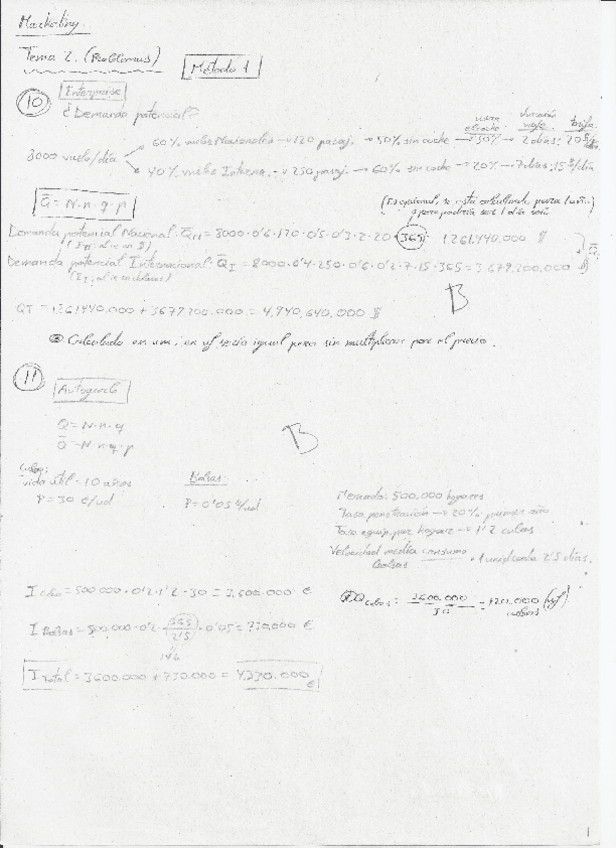 Marketing.
Tema 2. (Problemas)
Método 1
10 Enterprise
¿Demanda potencial?
60% vuelos Nacionales → 120 pasaj. → 50% sin coche → 30% → 2 días: 20 $/día
3000 vuelos/día
40% vuelos Interna. → 250 pasaj. → 60% sin coche → 20% → 7 días: 15 $/día
Q = N·n·q·p
(Es opcional, se está calculando para 1 año.
y pero podría ser 1 día solo)
Demanda potencial Nacional: QN = 3000·0'6·120·0'5·0'3·2·20·365 = 1.261.440.000 $
Demanda potencial Internacional: QI = 3000·0'4·250·0'6·0'2·7·15·365 = 3.679.200.000 $
QT = 1.261.440.000 + 3.679.200.000 = 4.940.640.000 $
B
Calculado en u.m., en uf sería igual pero sin multiplicar por el precio.
11
Q = N·n·q
Q = N·n·q·p
B
Cubo:
Vida útil = 10 años
P = 30 €/ud
Bolsas:
P = 0'05 €/ud
Mercado: 500.000 hogares
Tasa penetración → 20% primer año
Tasa equip. por hogar → 1'2 cubos
Velocidad media consumo
bolsas
1 unid. cada 2'5 días.
I cubo = 500.000·0'2·1'2·30 = 3.600.000 €
Q cubos = 3.600.000 / 30 = 120.000 (uf)
cubos
I Bolsas = 500.000·0'2·365/2'5·0'05 = 730.000 €
146
I Total = 3.600.000 + 730.000 = 4.330.000 €
1